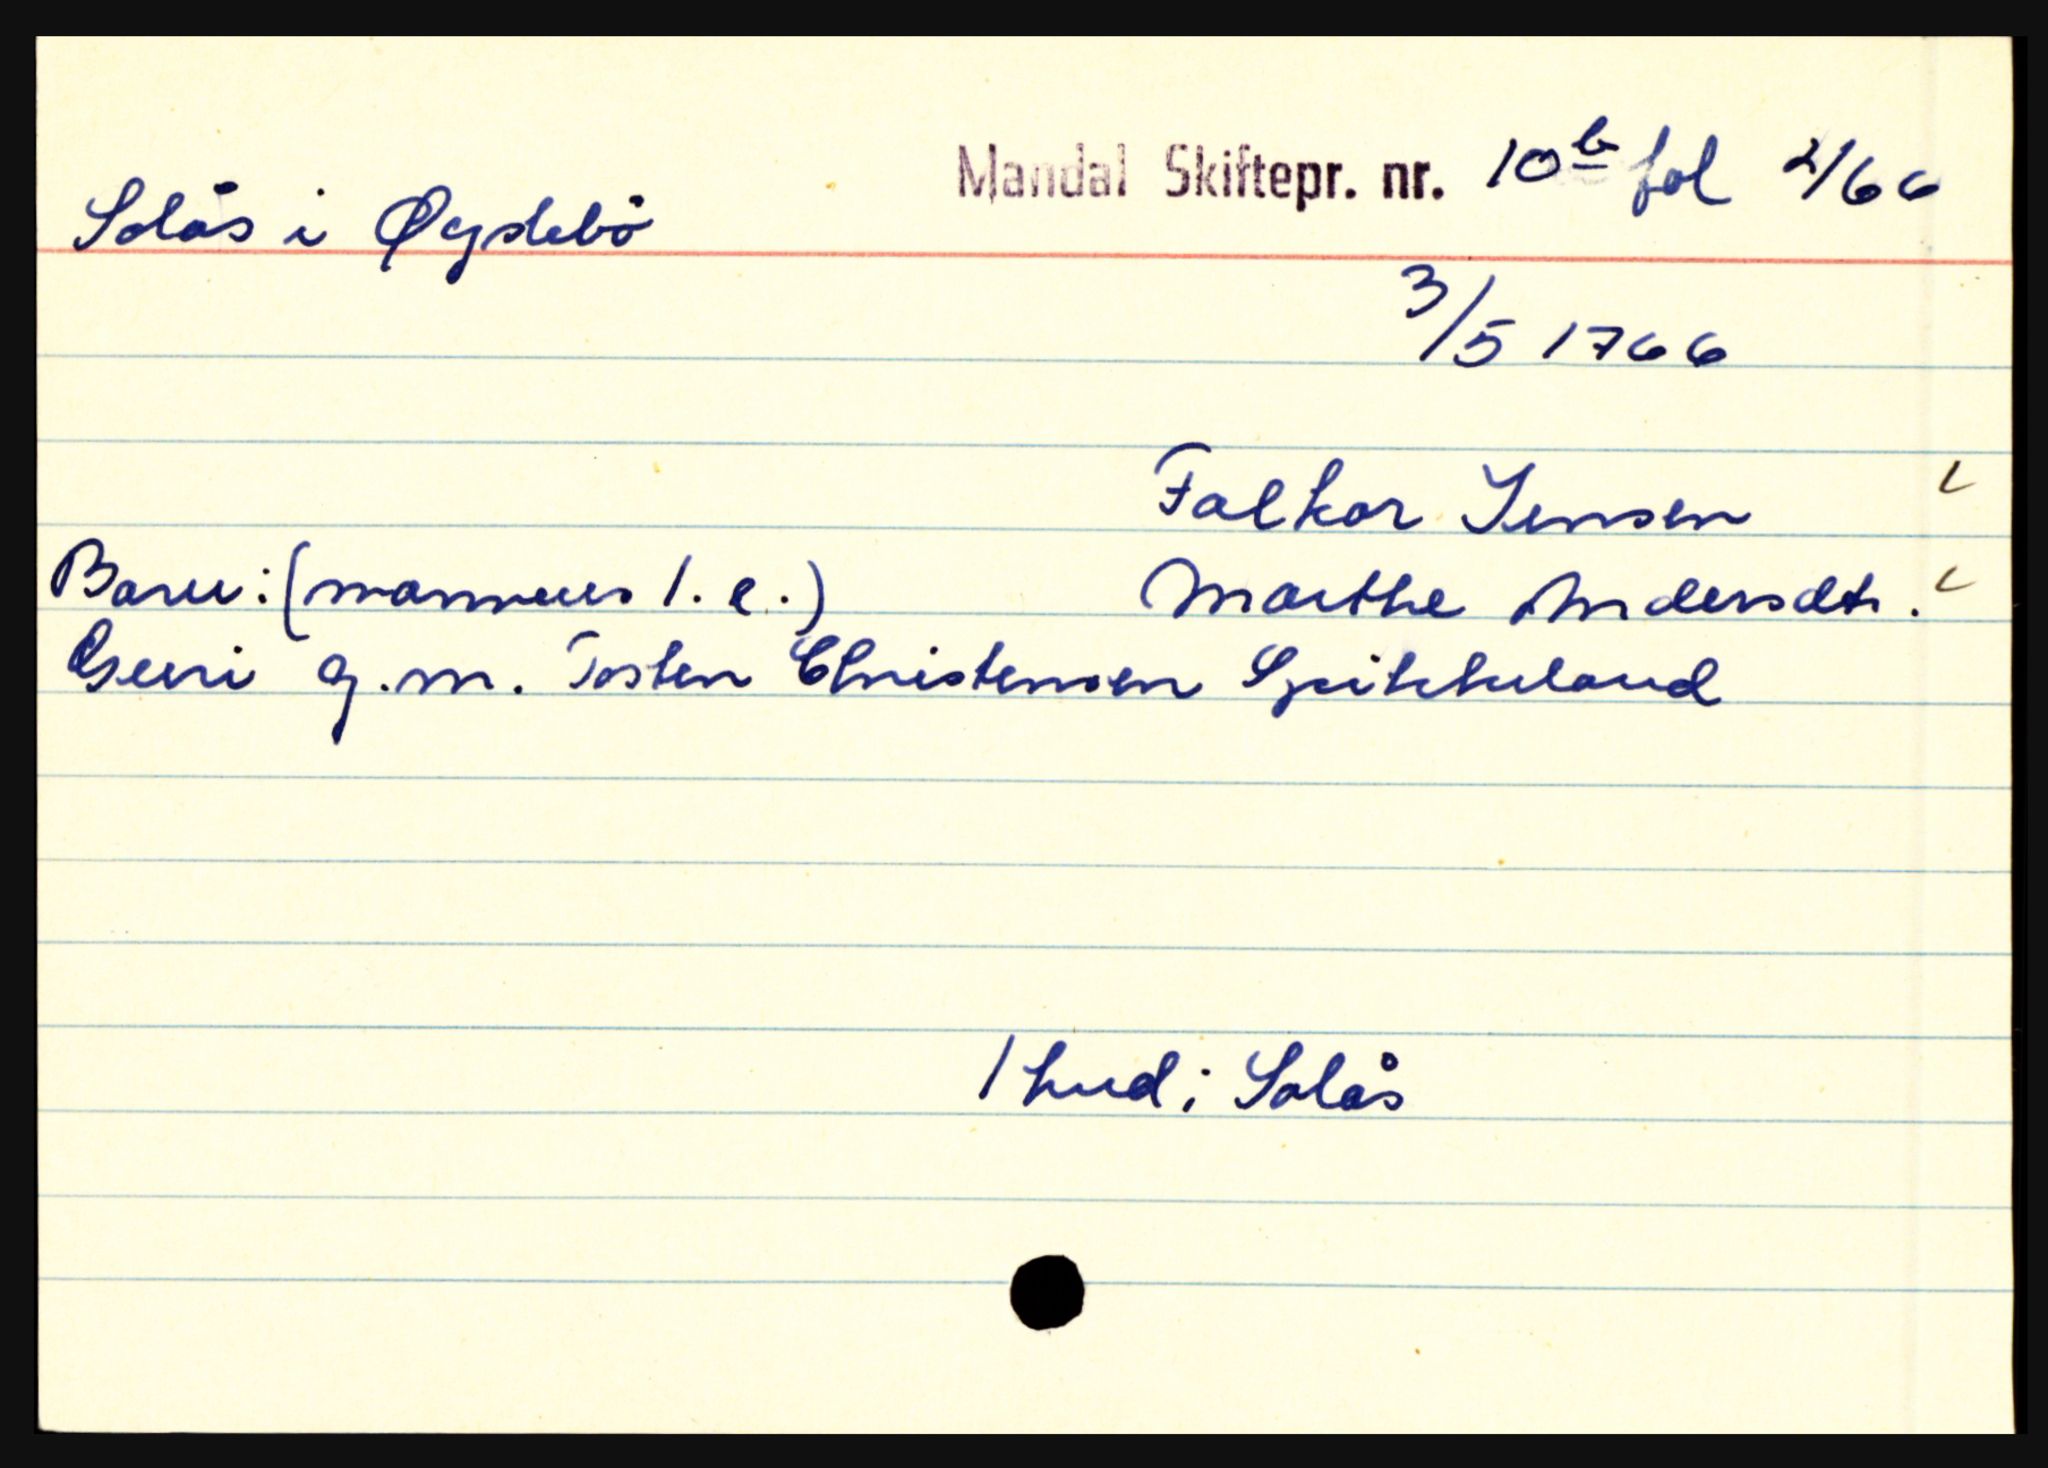 Mandal Skiftepr. nr. 10b fol 2/66
Solås i Øyslebö
3/5 1766
Falkor Jensen
Barn: (mannens 1. e.) Marthe Andersdtr.
Guri g.m. Tosten Christensen Spikkeland
1 hud i Solås